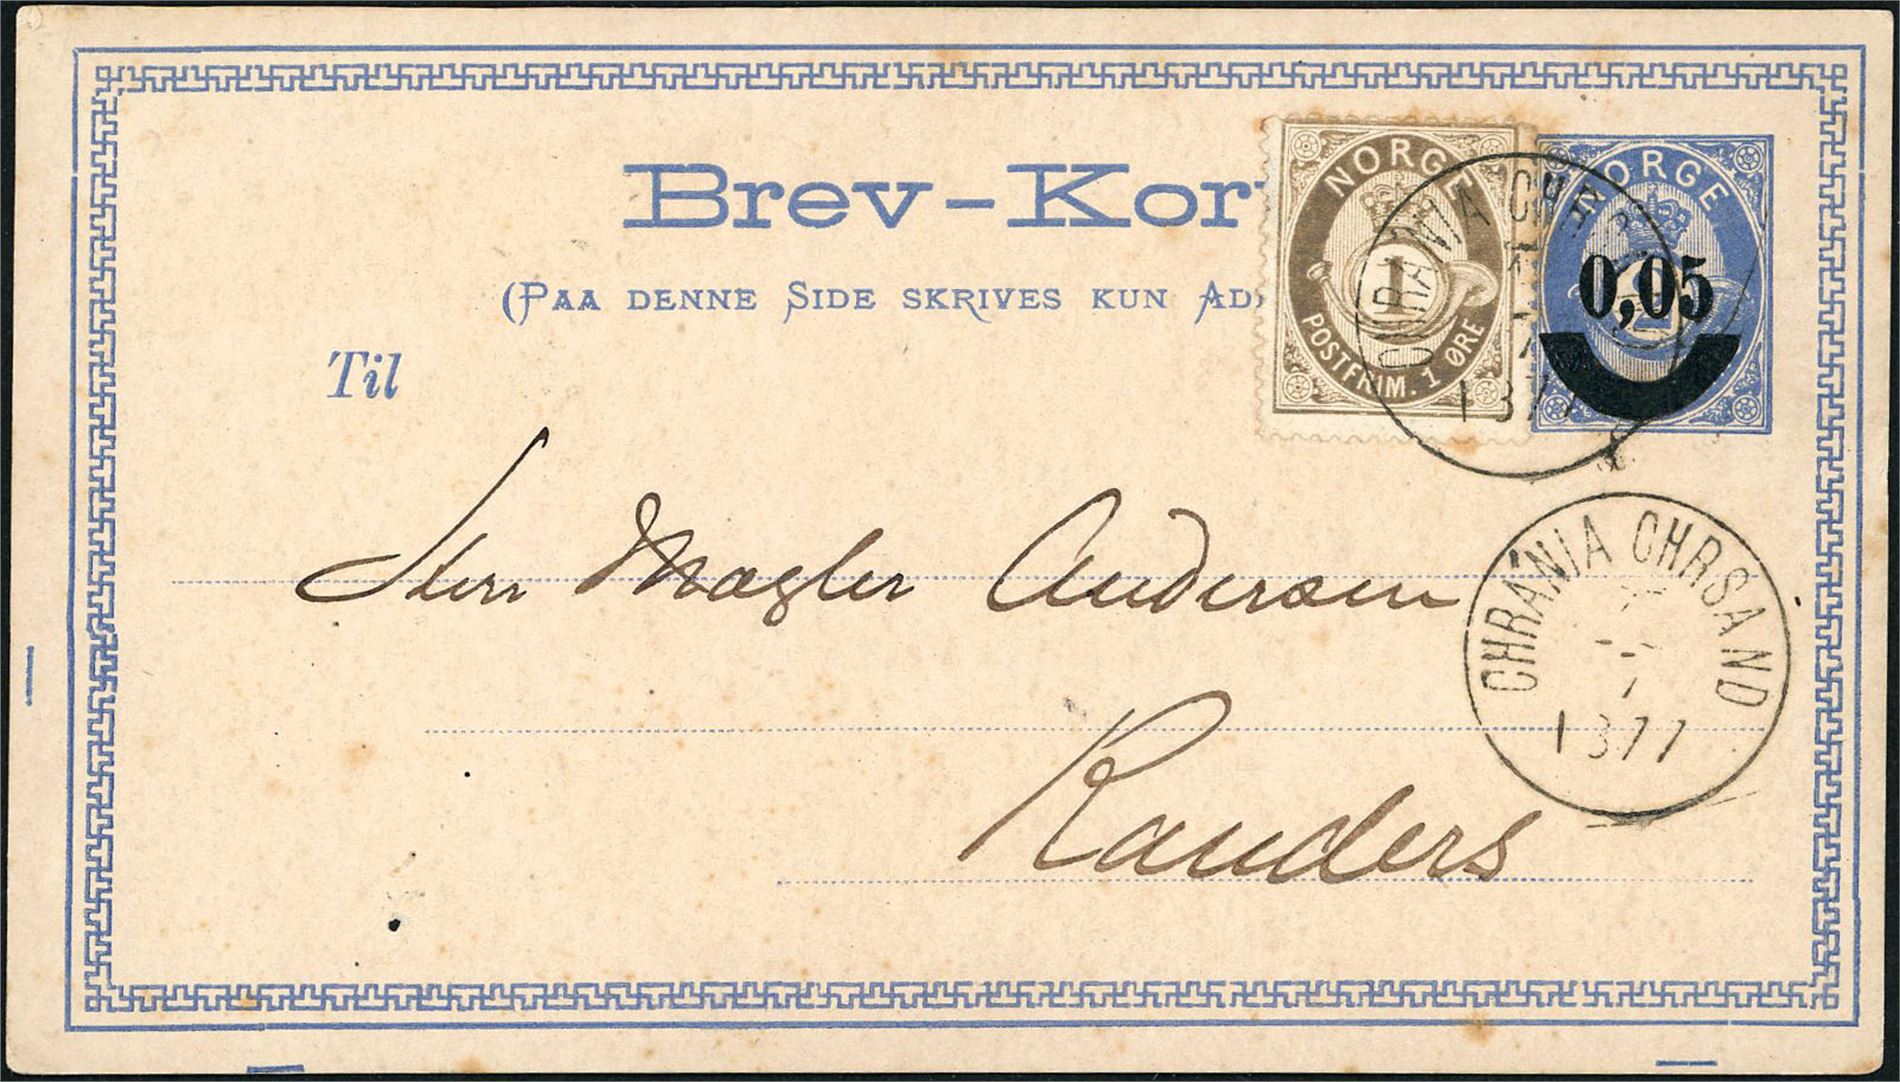 Brev-Kor
(Paa denne Side skrives kun Ad
NORGE
1
POSTFRIM. 1 ØRE
NORGE
0,05
CHRANIA CHR
7
1877
Til
Herr Mægler Andersen
CHRANIA CHRSAND
7
1877
Randers